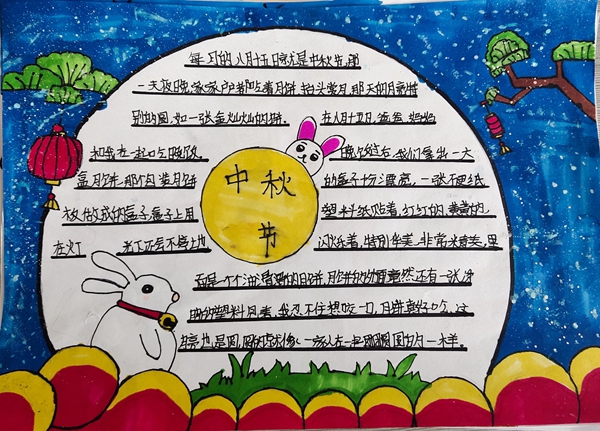 每一年的八月十五日就是中秋节,那
一天夜晚,家家户户都吃着月饼抬头赏月,那天的月亮特
别的圆,如一张金灿灿的月饼。 在八月十五日,爸爸 妈妈
和我在一起吃晚饭 晚饭过后,我们拿出一大
盒月饼,那个包装月饼 的盒子十分漂亮,一张不硬纸
板做成的盒子,盒子上用 塑料纸贴着,红红的,黄黄的,
中秋
节
在灯 光下还会不停上地 闪烁着,特别华美,非常精美,里
面是一个个油 的月饼,月饼的 面竟然还有一张
的塑料月夹,我忍不住想咬一口,月饼真好吃,这
月亮也是圆 一家人在一起 圆的月一样。